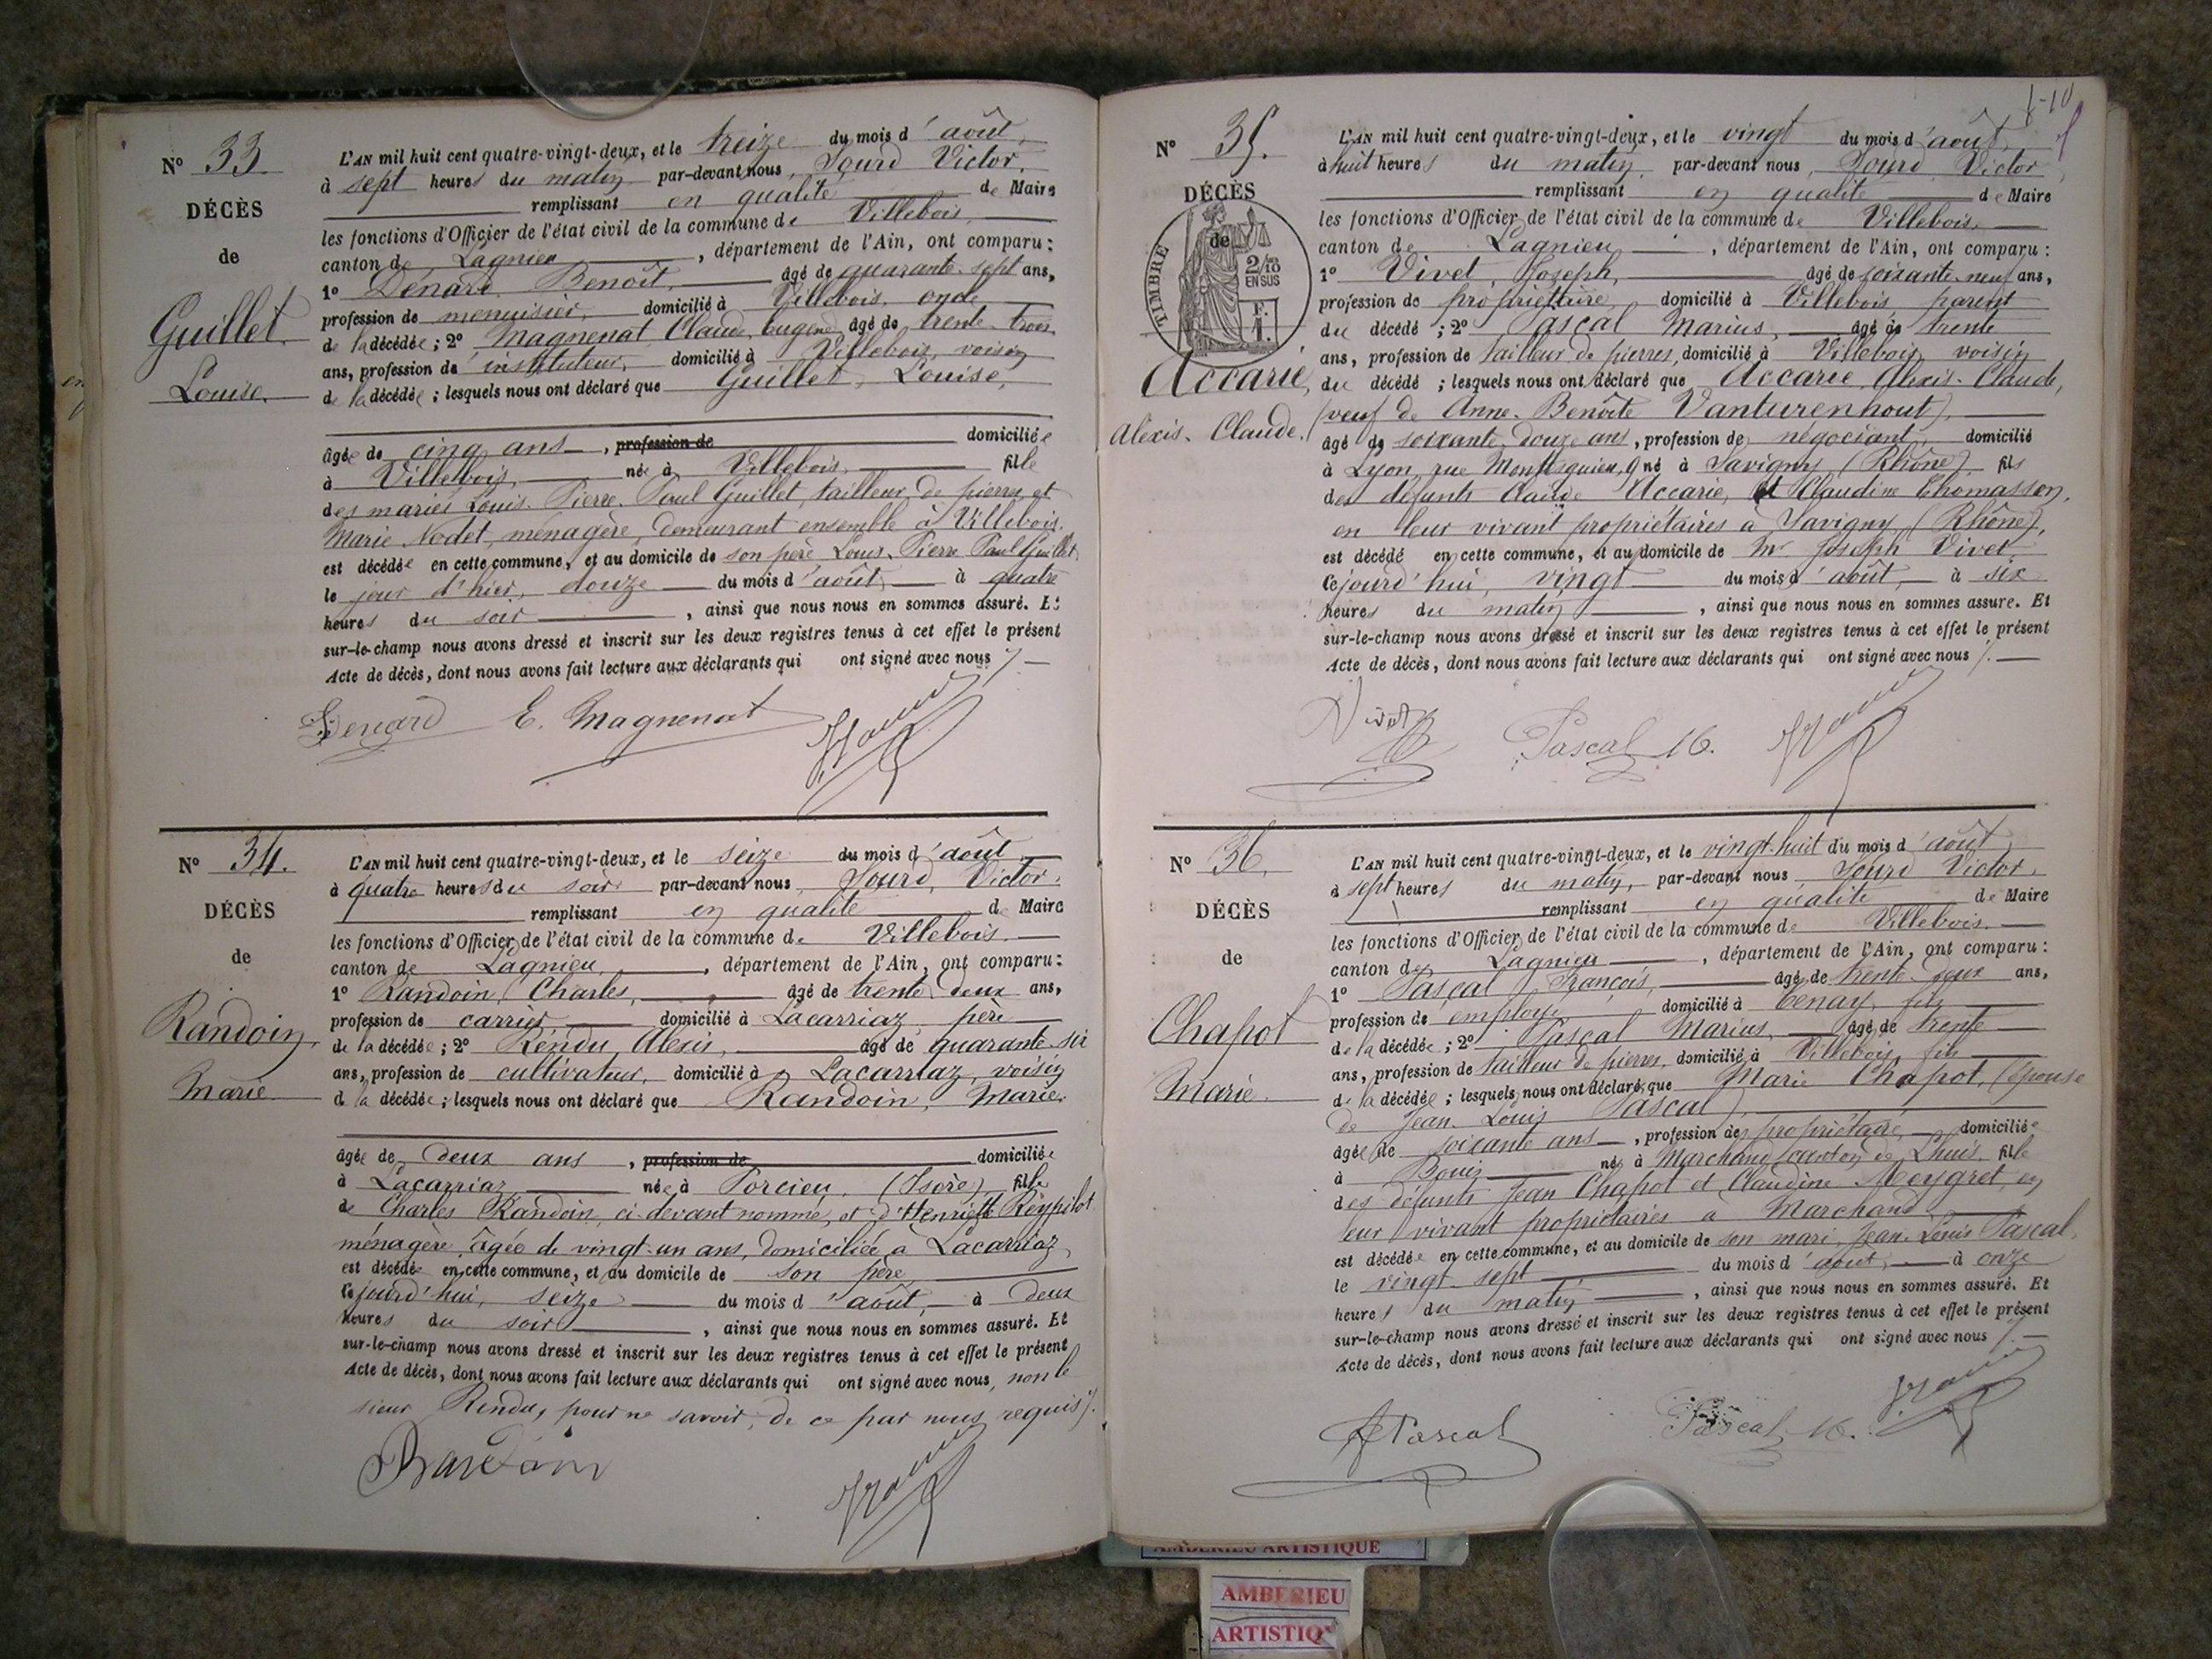 N° 33.
DÉCÈS
de
Guillet
Louise.
L'AN mil huit cent quatre-vingt-deux, et le treize du mois d'août,
à sept heures du matin par-devant nous, Sourd Victor,
remplissant en qualité de Maire
les fonctions d'Officier de l'état civil de la commune de Villebois,
canton de Lagnieu, département de l'Ain, ont comparu:
1° Dénard Benoît, âgé de quarante-sept ans,
profession de menuisier, domicilié à Villebois, oncle
de la décédée; 2° Magnenat Claude Eugène, âgé de trente-trois
ans, profession d'instituteur, domicilié à Villebois, voisin
de la décédée; lesquels nous ont déclaré que Guillet, Louise,
âgée de cinq ans, profession de domiciliée
à Villebois, née à Villebois, fille
des mariés Louis-Pierre-Paul Guillet, tailleur de pierres, et
Marie Nodet, ménagère, demeurant ensemble à Villebois.
est décédée en cette commune, et au domicile de son père Louis-Pierre-Paul Guillet,
le jour d'hier, douze du mois d'août, à quatre
heures du soir, ainsi que nous nous en sommes assuré. Et
sur-le-champ nous avons dressé et inscrit sur les deux registres tenus à cet effet le présent
Acte de décès, dont nous avons fait lecture aux déclarants qui ont signé avec nous
Denard E. Magnenat
N° 34.
DÉCÈS
de
Randoin,
Marie
L'AN mil huit cent quatre-vingt-deux, et le seize du mois d'août
à quatre heures du soir par-devant nous, Sourd, Victor,
remplissant en qualité de Maire
les fonctions d'Officier de l'état civil de la commune de Villebois.
canton de Lagnieu, département de l'Ain, ont comparu:
1° Randoin, Charles, âgé de trente-deux ans,
profession de carrier domicilié à Lacarriaz, père
de la décédée; 2° Rendu, Alexis, âgé de quarante-six
ans, profession de cultivateur, domicilié à Lacarriaz, voisin
de la décédée; lesquels nous ont déclaré que Randoin, Marie.
âgée de deux ans, profession de domiciliée
à Lacarriaz née à Porcieu, (Isère) fille
de Charles Randoin, ci-devant nommé, et d'Henriette
ménagère, âgée de vingt-un ans, domiciliée à Lacarriaz,
est décédée en cette commune, et au domicile de son père
Cejourd'hui, seize du mois d'août, à deux
heures du soir, ainsi que nous nous en sommes assuré. Et
sur-le-champ nous avons dressé et inscrit sur les deux registres tenus à cet effet le présent
Acte de décès, dont nous avons fait lecture aux déclarants qui ont signé avec nous, non le
sieur Rendu, pour ne savoir, de ce par nous requis.
Randoin
N° 35.
DÉCÈS
de
TIMBRE
2/10
EN SUS
F.
1.
Accarie,
Alexis-Claude.
L'AN mil huit cent quatre-vingt-deux, et le vingt du mois d'août,
à huit heures du matin, par-devant nous, Sourd Victor,
remplissant en qualité de Maire
les fonctions d'Officier de l'état civil de la commune de Villebois.
canton de Lagnieu, département de l'Ain, ont comparu:
1° Vivet, Joseph, âgé de soixante-neuf ans,
profession de propriétaire domicilié à Villebois parent
du décédé; 2° Pascal Marius, âgé de trente
ans, profession de tailleur de pierres, domicilié à Villebois, voisin
du décédé; lesquels nous ont déclaré que Accarie, Alexis-Claude,
(veuf de Anne-Benoîte Vanturenhout),
âgé de soixante-douze ans, profession de négociant, domicilié
à Lyon, rue Montesquieu, 9 né à Savigny (Rhône), fils
des défunts Claude Accarie, et Claudine Thomasson,
en leur vivant propriétaires à Savigny (Rhône),
est décédé en cette commune, et au domicile de Mr Joseph Vivet,
Cejourd'hui, vingt du mois d'août, à six
heures du matin, ainsi que nous nous en sommes assuré. Et
sur-le-champ nous avons dressé et inscrit sur les deux registres tenus à cet effet le présent
Acte de décès, dont nous avons fait lecture aux déclarants qui ont signé avec nous
Vivet Pascal M.
N° 36.
DÉCÈS
de
Chapot
Marie.
L'AN mil huit cent quatre-vingt-deux, et le vingt-huit du mois d'août
à sept heures du matin, par-devant nous Sourd Victor,
remplissant en qualité de Maire
les fonctions d'Officier de l'état civil de la commune de Villebois.
canton de Lagnieu, département de l'Ain, ont comparu:
1° Pascal François, âgé de trente-deux ans,
profession d'employé domicilié à Tenay, fils
de la décédée; 2° Pascal Marius, âgé de trente
ans, profession de tailleur de pierres, domicilié à Villebois, fils
de la décédée; lesquels nous ont déclaré que Marie Chapot, (épouse
de Jean-Louis Pascal),
âgée de soixante ans, profession de propriétaire, domiciliée
à Bouis née à Marchand canton de Lhuis, fille
des défunts Jean Chapot et Claudine Meygret, en
leur vivant propriétaires à Marchand
est décédée en cette commune, et au domicile de son mari, Jean-Louis Pascal,
le vingt-sept du mois d'août, à onze
heures du matin, ainsi que nous nous en sommes assuré. Et
sur-le-champ nous avons dressé et inscrit sur les deux registres tenus à cet effet le présent
Acte de décès, dont nous avons fait lecture aux déclarants qui ont signé avec nous
Pascal Pascal M.
AMBERIEU ARTISTIQUE
AMBERIEU
ARTISTIQ